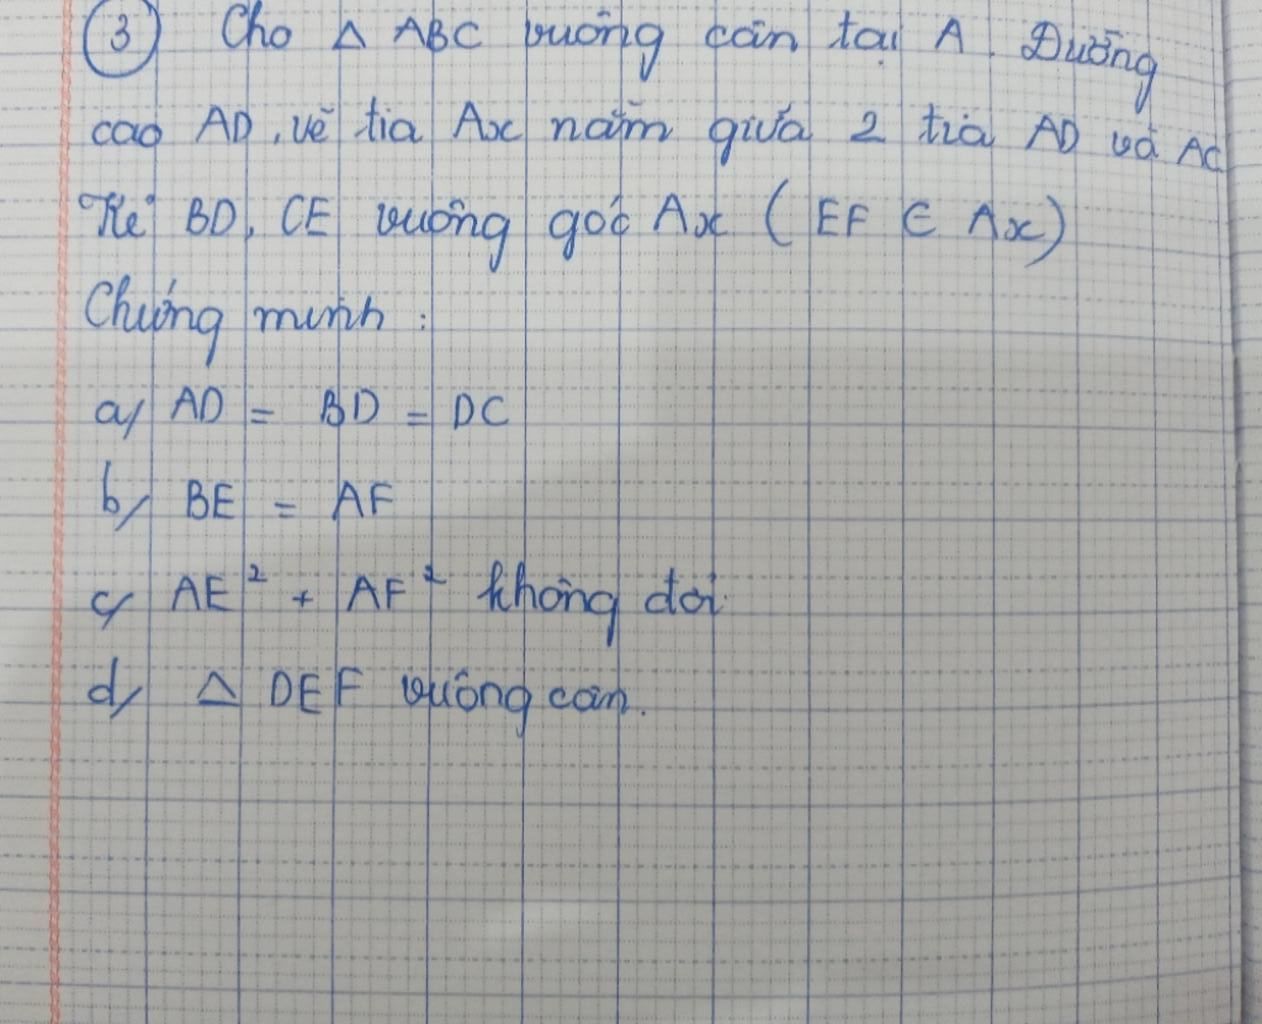 ③ Cho △ ABC vuông cân tại A. Đường
cao AD, vẽ tia Ax nằm giữa 2 tia AD và AC
Kẻ BD, CE vuông góc Ax ( EF ∈ Ax)
Chứng minh :
a/ AD = BD = DC
b/ BE = AF
c/ AE² + AF² không đổi
d/ △ DEF vuông cân.